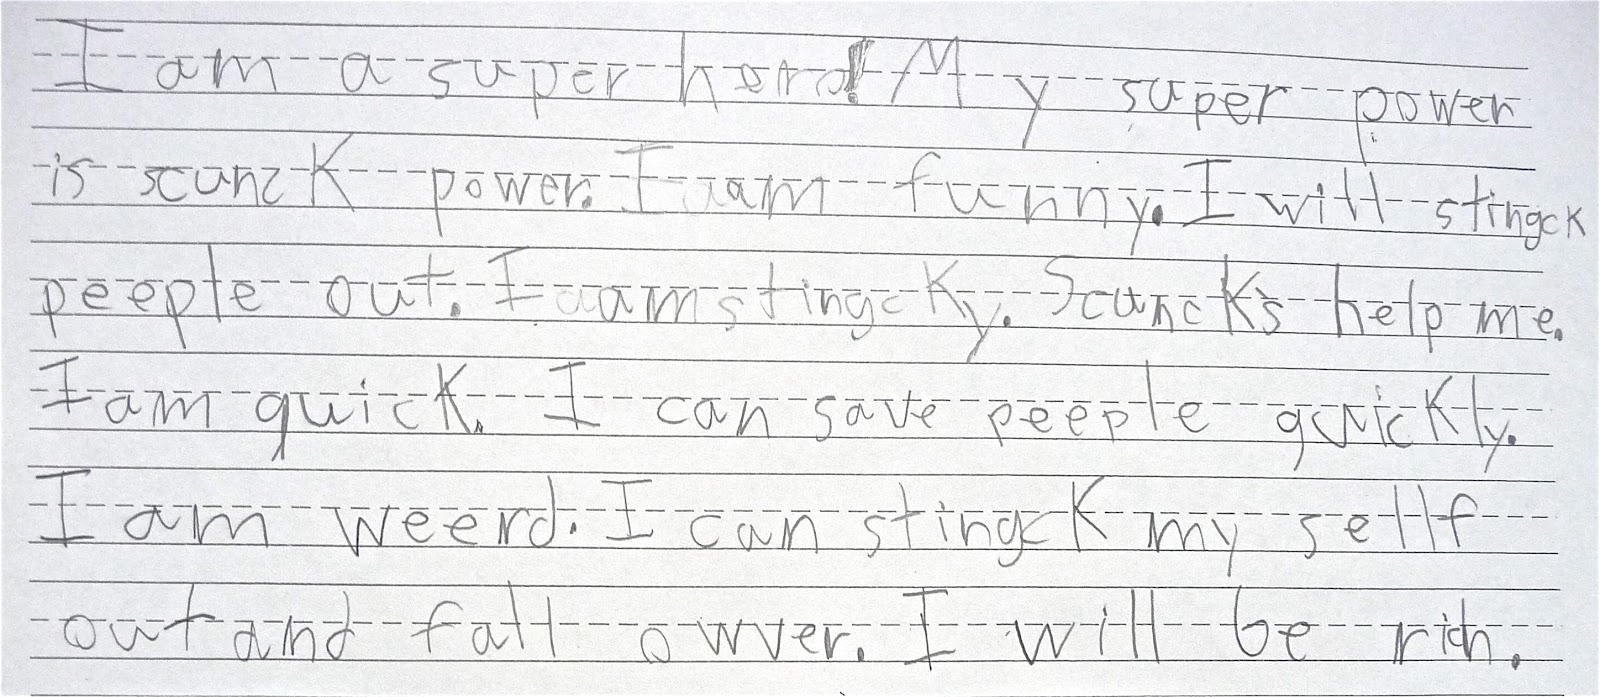 I am a super hero! My super power
is scunck power. I am funny. I will stingck
peeple out. I am stingcky. Scuncks help me.
I am quick. I can save peeple quickly.
I am weerd. I can stingck my sellf
out and fall owver. I will be rich.